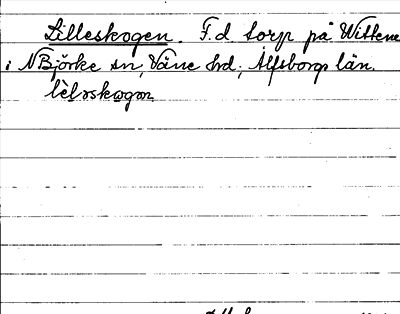 Lilleskogen. F.d torp på Wittene
i N Björke sn, Väne hd, Älfsborgs län.
lèlɔskɔgɔn